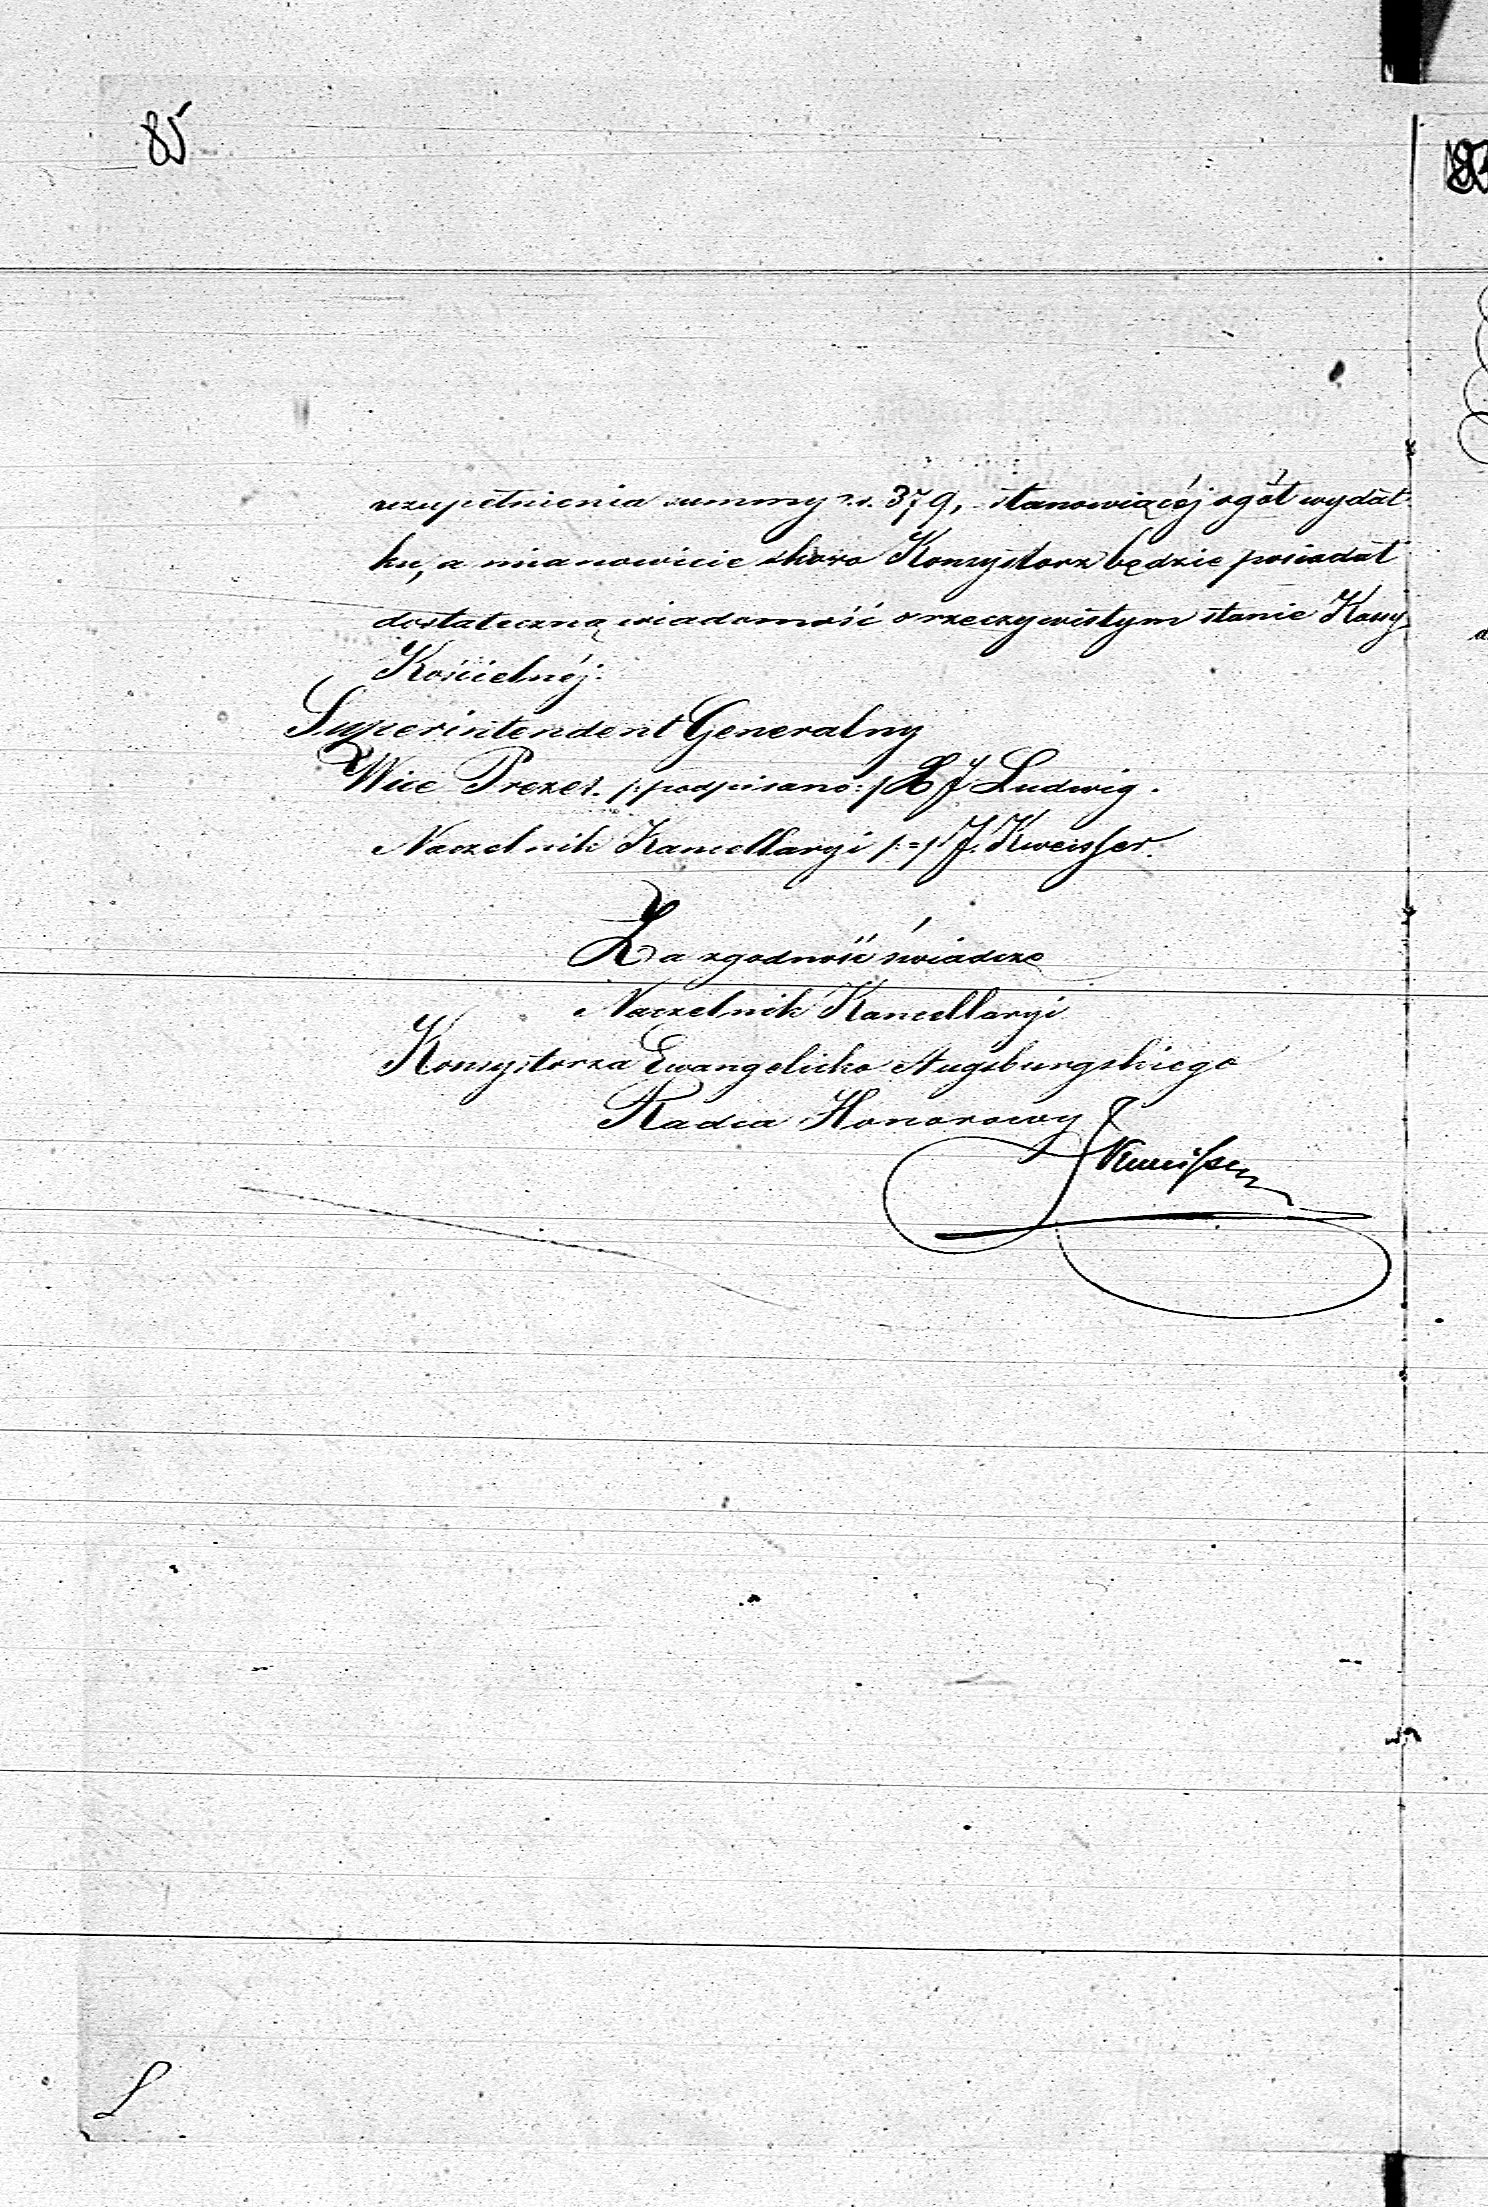 85
uzupełnienia summy r.s. 379, stanowiącéj ogół wydat-
ku, a mianowicie skoro Konsystorz będzie posiadał
dostateczną wiadomość o rzeczywistym stanie Kassy
Kościelnéj.
Superintendent Generalny
Wice Prezes /:podpisano:/ Ludwig.
Naczelnik Kancellaryi /:=:/ J. Kweisser.
Za zgodność świadczę
Naczelnik Kancellaryi
Konsystorza Ewangelicko Augsburgskiego
Radca Honorowy
JKweisser